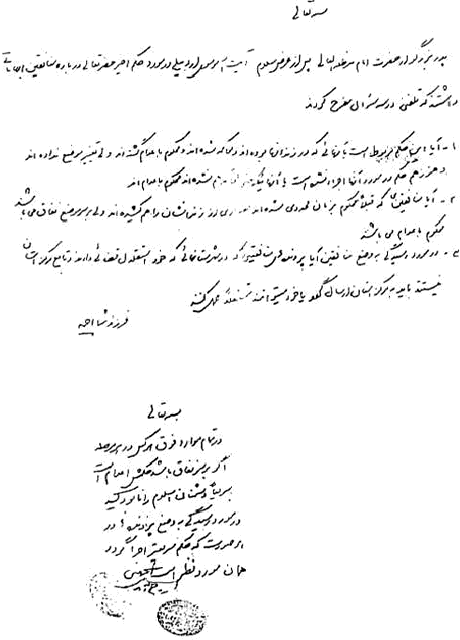 بسمه تعالی
پدر بزرگوار حضرت امام مدظله العالی پس از عرض سلام آیت الله موسوی اردبیلی در مورد حکم اخیر حضرتعالی درباره منافقین ابهاماتی
داشته‌اند که تلفنی در سه سئوال مطرح کردند
۱ - آیا این حکم مربوط است به آنهائی که در زندان‌ها بوده‌اند و محاکمه شده‌اند و محکوم به اعدام گشته‌اند ولی تغییر موضع نداده‌اند
و هنوز هم حکم در مورد آنها اجرا نشده است یا آنهائیکه حتی محاکمه هم نشده‌اند محکوم به اعدامند
۲ - آیا منافقین که قبلاً محکوم به زندان محدود شده‌اند و مقداری از زندانشان را هم کشیده‌اند ولی بر سر موضع نفاق می‌باشند
محکوم به اعدام می‌باشند
۳ - در مورد رسیدگی به وضع منافقین آیا پرونده‌های منافقینی که در شهرستانهائی که خود استقلال قضائی دارند و تابع مرکز استان
نیستند باید به مرکز استان ارسال گردد یا خود میتوانند مستقلاً عمل کنند
فرزند شما احمد
بسمه تعالی
در تمام موارد فوق هر کس در هر مرحله
اگر بر سر نفاق باشد حکمش اعدام است
سریعاً دشمنان اسلام را نابود کنید
در مورد رسیدگی به وضع پرونده‌ها در
هر صورت که حکم سریعتر اجرا گردد
همان مورد نظر است